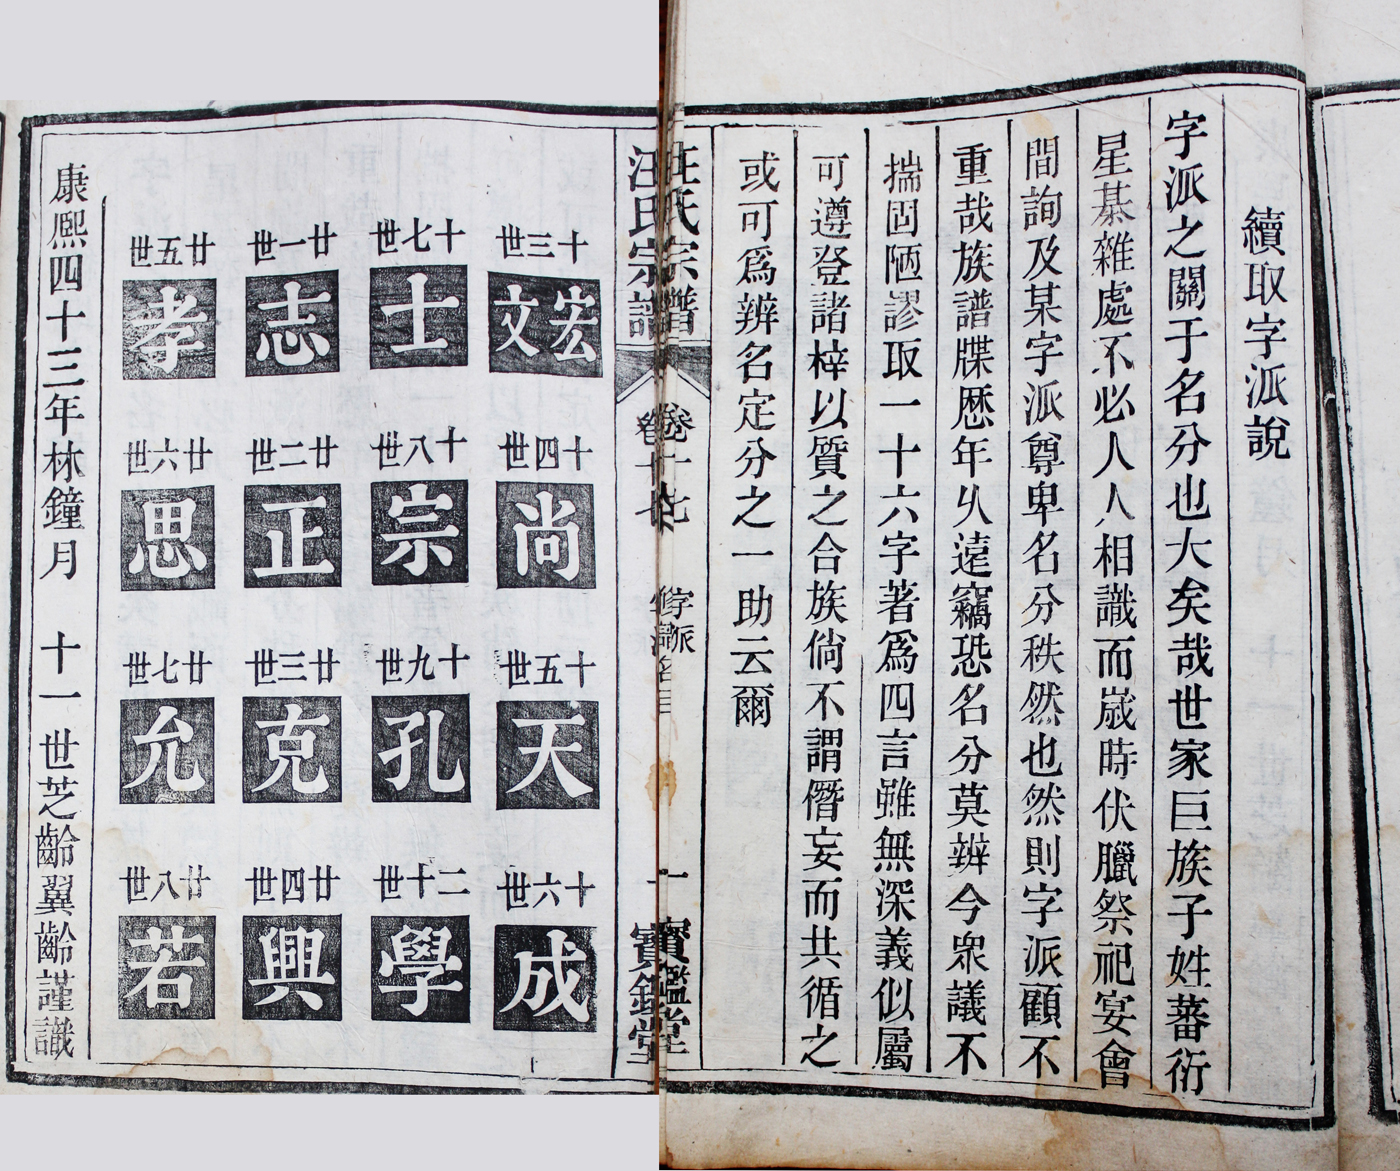 續取字派說
字派之關于名分也大矣哉世家巨族子姓蕃衍
星棊雜處不必人人相識而歲時伏臘祭祀宴會
間詢及某字派尊卑名分秩然也然則字派顧不
重哉族譜牒歷年久遠竊恐名分莫辨今衆議不
揣固陋謬取一十六字著爲四言雖無深義似屬
可遵登諸梓以質之合族倘不謂僭妄而共循之
或可爲辨名定分之一助云爾
汪氏宗譜
卷十七
字派
一
寶鑑堂
十三世
宏文
十四世
尚
十五世
天
十六世
成
十七世
士
十八世
宗
十九世
孔
二十世
學
廿一世
志
廿二世
正
廿三世
克
廿四世
興
廿五世
孝
廿六世
思
廿七世
允
廿八世
若
康熙四十三年林鐘月 十一世芝齡翼齡謹識